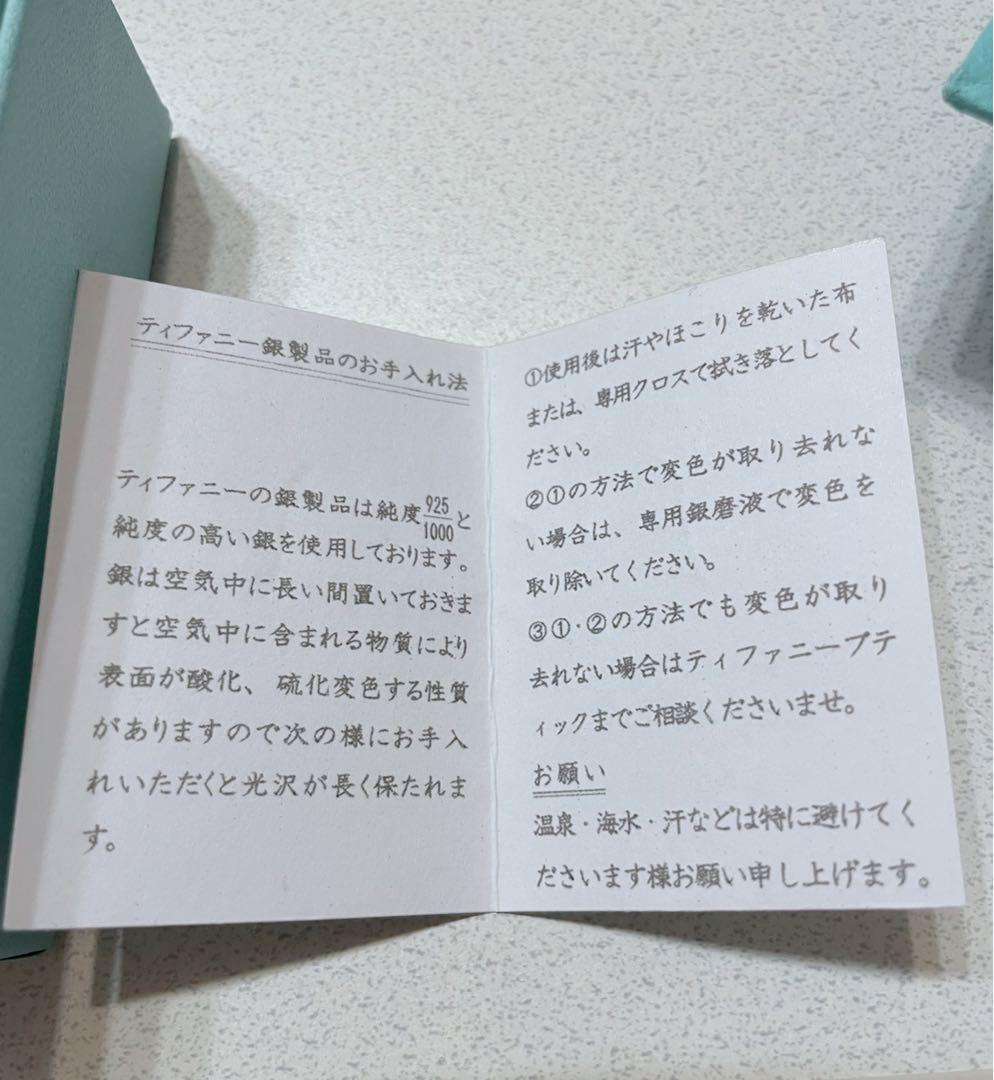 ティファニー銀製品のお手入れ法
ティファニーの銀製品は純度925/1000と
純度の高い銀を使用しております。
銀は空気中に長い間置いておきま
すと空気中に含まれる物質により
表面が酸化、硫化変色する性質
がありますので次の様にお手入
れいただくと光沢が長く保たれま
す。
①使用後は汗やほこりを乾いた布
または、専用クロスで拭き落としてく
ださい。
②①の方法で変色が取り去れな
い場合は、専用銀磨液で変色を
取り除いてください。
③①·②の方法でも変色が取り
去れない場合はティファニーブテ
ィックまでご相談くださいませ。
お願い
温泉·海水·汗などは特に避けてく
ださいます様お願い申し上げます。